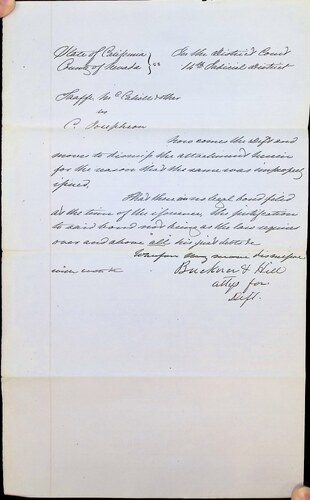 State of California } ss In the District Court
County of Nevada 14th Judicial District
McCahill & others
vs
C. Josephson
Now comes the Deft and
moves to dismiss the attachment herein
for the reason that the same was improperly
issued.
That there is no legal bond filed
at the time of the issuance, the justification
to said bond not being as the law requires
over and above all his just debts &c
Wherefore they move dismissal
with costs &c
Buckner & Hill
attys for
Deft.